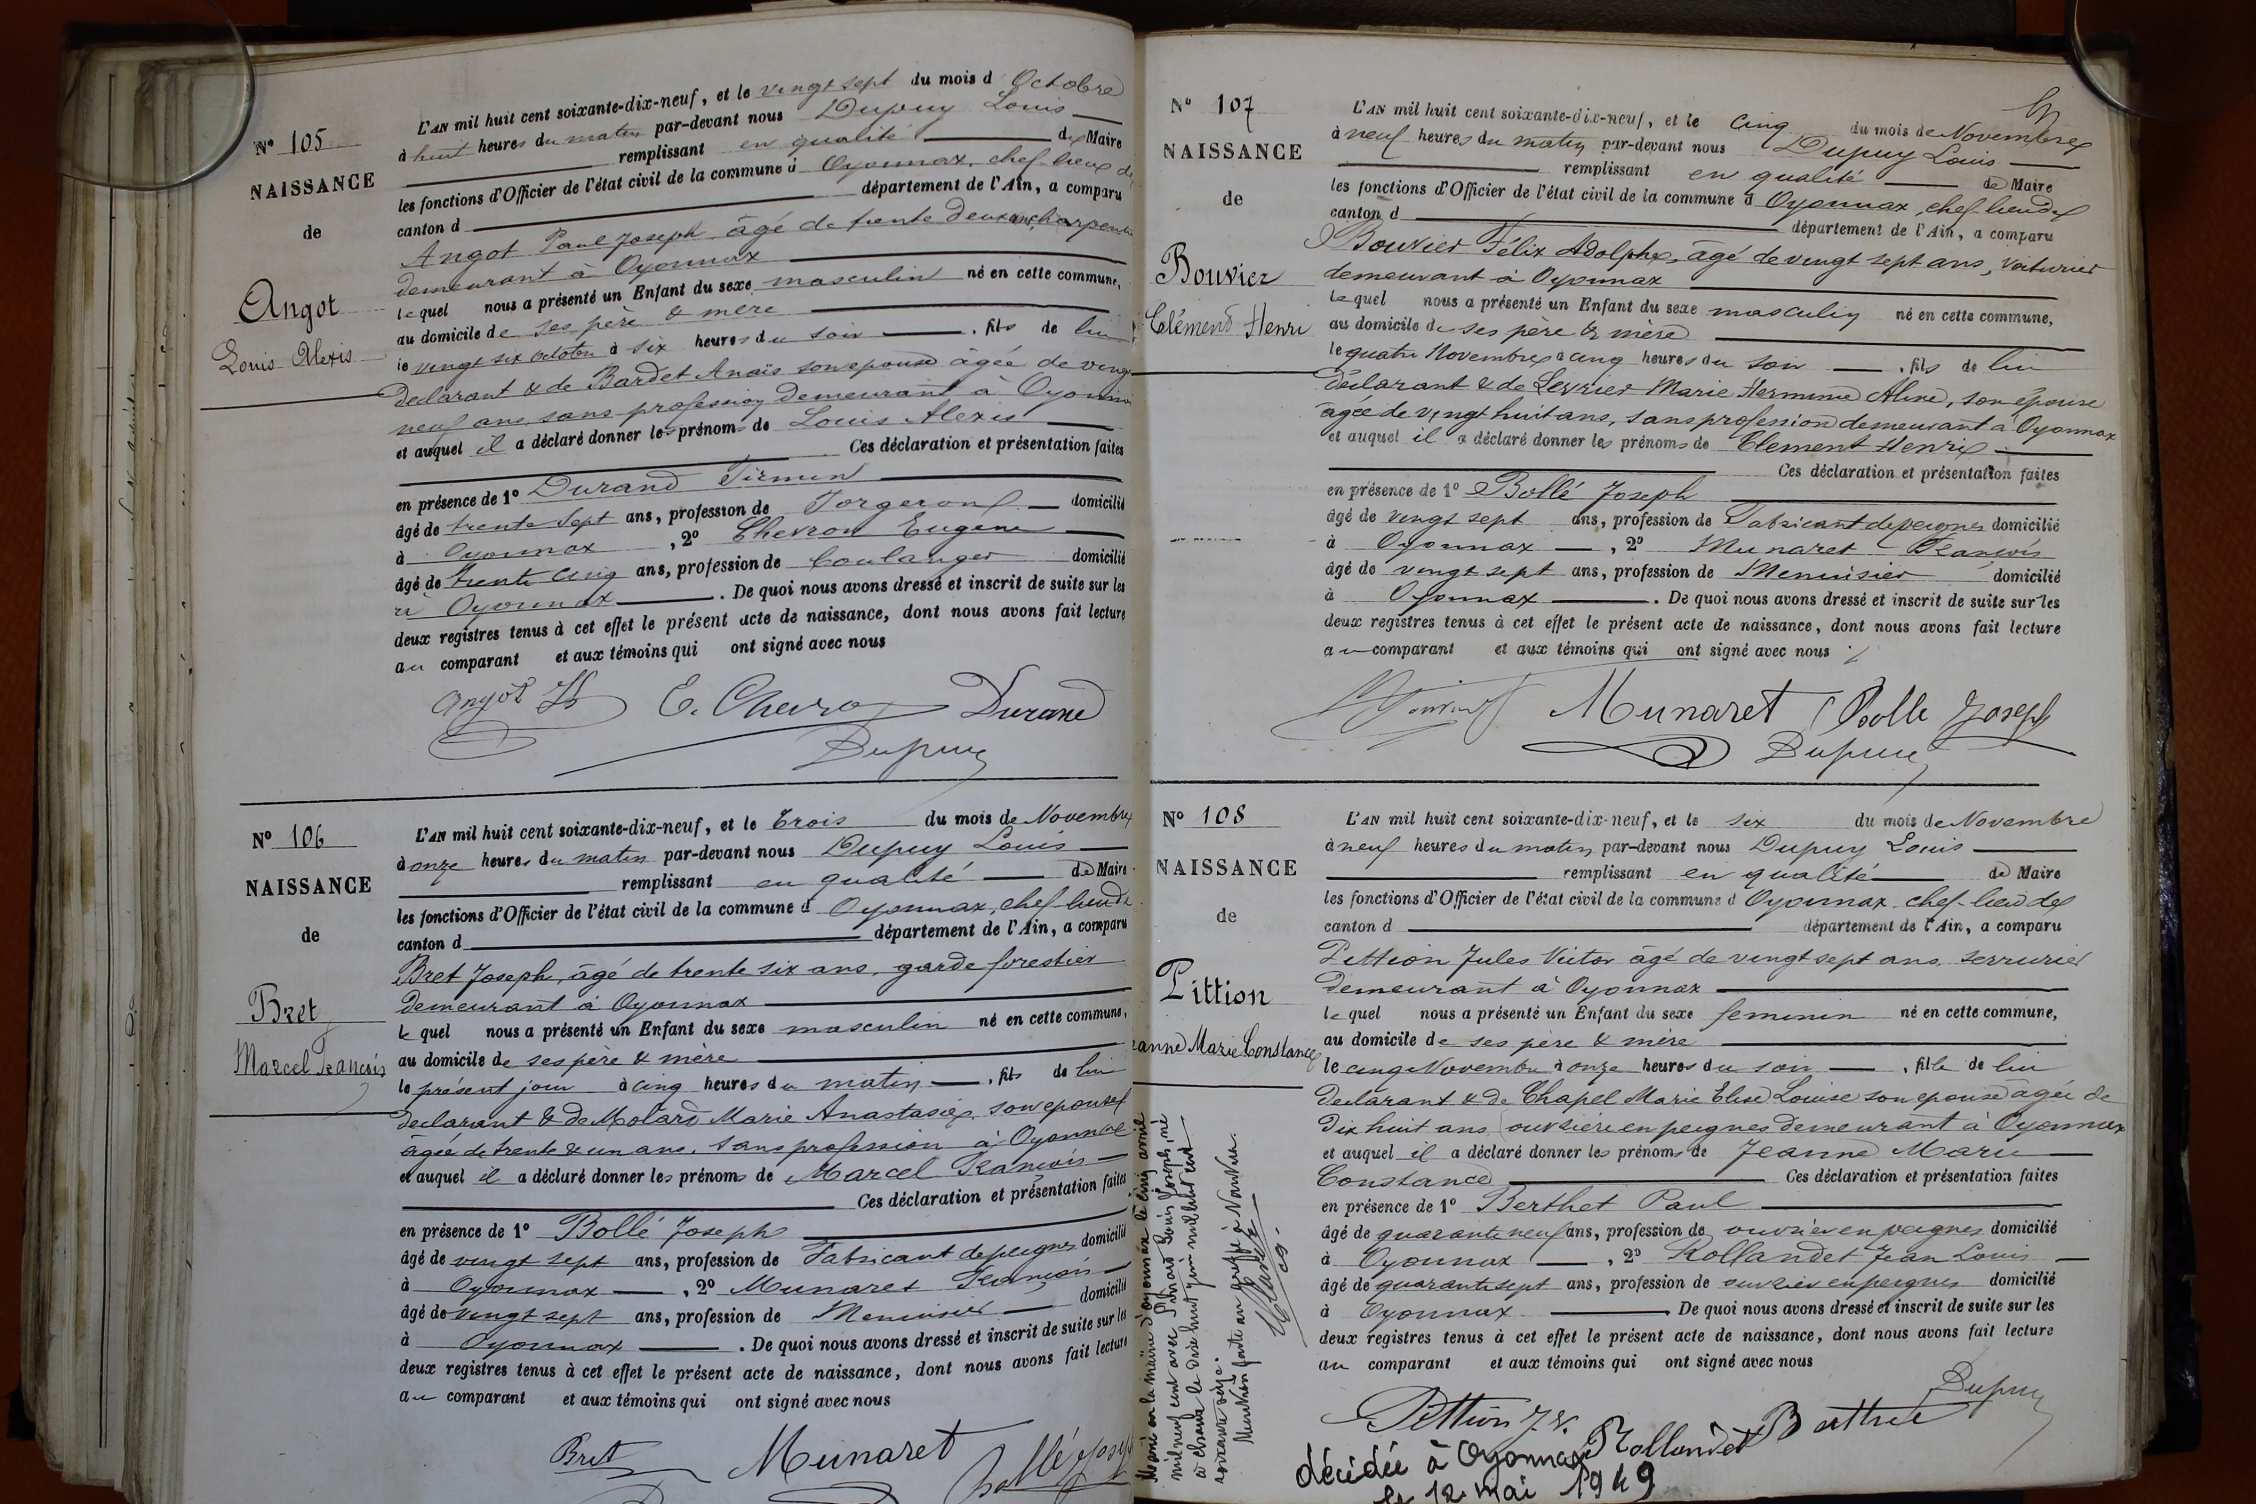 N° 105
NAISSANCE
de
Angot
Louis Alexis
L'AN mil huit cent soixante-dix-neuf, et le vingt sept du mois d Octobre
à huit heures du matin par-devant nous Dupuy Louis
remplissant en qualité de Maire
les fonctions d'Officier de l'état civil de la commune d Oyonnax, chef-lieu de
canton d département de l'Ain, a comparu
Angot Paul Joseph âgé de trente deux ans, charpentier
demeurant à Oyonnax
lequel nous a présenté un Enfant du sexe masculin né en cette commune,
au domicile de ses père & mère
le vingt six octobre à six heures du soir, fils de lui
déclarant & de Bardet Anais son epouse âgée de vingt
neuf ans sans profession demeurant à Oyonnax
et auquel il a déclaré donner les prénoms de Louis Alexis
Ces déclaration et présentation faites
en présence de 1° Durand Firmin
âgé de trente sept ans, profession de Forgeron domicilié
à Oyonnax, 2° Chevron Eugene
âgé de trente cinq ans, profession de boulanger domicilié
à Oyonnax. De quoi nous avons dressé et inscrit de suite sur les
deux registres tenus à cet effet le présent acte de naissance, dont nous avons fait lecture
au comparant et aux témoins qui ont signé avec nous
Angot E. Chevro Durand
Dupuy
N° 106
NAISSANCE
de
Bret
Marcel François
L'AN mil huit cent soixante-dix-neuf, et le trois du mois de Novembre
à onze heures du matin par-devant nous Dupuy Louis
remplissant en qualité de Maire
les fonctions d'Officier de l'état civil de la commune d Oyonnax, chef-lieu de
canton d département de l'Ain, a comparu
Bret Joseph, âgé de trente six ans, garde forestier
demeurant à Oyonnax
lequel nous a présenté un Enfant du sexe masculin né en cette commune,
au domicile de ses père & mère
le présent jour à cinq heures du matin, fils de lui
déclarant & de Molard Marie Anastasie, son epouse
âgée de trente & un ans, sans profession à Oyonnax
et auquel il a déclaré donner les prénoms de Marcel François
Ces déclaration et présentation faites
en présence de 1° Bollé Joseph
âgé de vingt sept ans, profession de Fabricant de peignes domicilié
à Oyonnax, 2° Munaret François
âgé de vingt sept ans, profession de Menuisier domicilié
à Oyonnax. De quoi nous avons dressé et inscrit de suite sur les
deux registres tenus à cet effet le présent acte de naissance, dont nous avons fait lecture
au comparant et aux témoins qui ont signé avec nous
Bret Munaret Bollé Joseph
N° 107
NAISSANCE
de
Bouvier
Clément Henri
L'AN mil huit cent soixante-dix-neuf, et le cinq du mois de Novembre
à neuf heures du matin par-devant nous Dupuy Louis
remplissant en qualité de Maire
les fonctions d'Officier de l'état civil de la commune d Oyonnax, chef-lieu de
canton d département de l'Ain, a comparu
Bouvier Félix Adolphe, âgé de vingt sept ans, voiturier
demeurant à Oyonnax
lequel nous a présenté un Enfant du sexe masculin né en cette commune,
au domicile de ses père & mère
le quatre Novembre à cinq heures du soir, fils de lui
déclarant & de Levrier Marie Hermine Aline, son épouse
âgée de vingt huit ans, sans profession demeurant à Oyonnax
et auquel il a déclaré donner les prénoms de Clement Henri
Ces déclaration et présentation faites
en présence de 1° Bollé Joseph
âgé de vingt sept ans, profession de Fabricant de peignes domicilié
à Oyonnax, 2° Munaret François
âgé de vingt sept ans, profession de Menuisier domicilié
à Oyonnax. De quoi nous avons dressé et inscrit de suite sur les
deux registres tenus à cet effet le présent acte de naissance, dont nous avons fait lecture
au comparant et aux témoins qui ont signé avec nous
Munaret Bolle Joseph
Dupuy
N° 108
NAISSANCE
de
Pittion
Jeanne Marie Constance
L'AN mil huit cent soixante-dix-neuf, et le six du mois de Novembre
à neuf heures du matin par-devant nous Dupuy Louis
remplissant en qualité de Maire
les fonctions d'Officier de l'état civil de la commune d Oyonnax chef-lieu de
canton d département de l'Ain, a comparu
Pittion Jules Victor âgé de vingt sept ans serrurier
demeurant à Oyonnax
lequel nous a présenté un Enfant du sexe feminin né en cette commune,
au domicile de ses père & mère
le cinq Novembre à onze heures du soir, fille de lui
declarant & de Chapel Marie Elise Louise son epouse âgée de
dix huit ans ouvrière en peignes demeurant à Oyonnax
et auquel il a déclaré donner les prénoms de Jeanne Marie
Constance Ces déclaration et présentation faites
en présence de 1° Berthet Paul
âgé de quarante neuf ans, profession de ouvrier en peignes domicilié
à Oyonnax, 2° Rollandet Jean Louis
âgé de quarante sept ans, profession de ouvrier en peignes domicilié
à Oyonnax. De quoi nous avons dressé et inscrit de suite sur les
deux registres tenus à cet effet le présent acte de naissance, dont nous avons fait lecture
au comparant et aux témoins qui ont signé avec nous
Dupuy
Pittion J. V. Rollandet Berthet
décédée à Oyonnax
le 12 mai 1949
Marié en la mairie d'Oyonnax le cinq avril
mil neuf cent avec Louis Joseph, né
à le dix huit juin mil huit cent
soixante
Mention faite au greffe à Nantua.